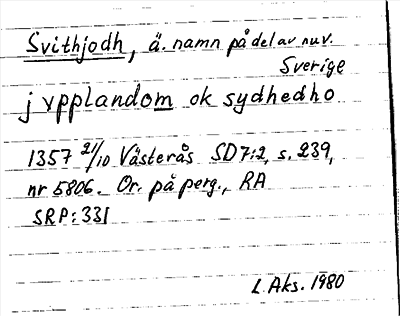 Svithjodh, ä. namn på del av nuv.
Sverige
j vpplandom ok sydhedho
1357 21/10 Västerås SD7:2, s. 239,
nr 5806. Or. på perg., RA
SRP: 331
L. Aks. 1980